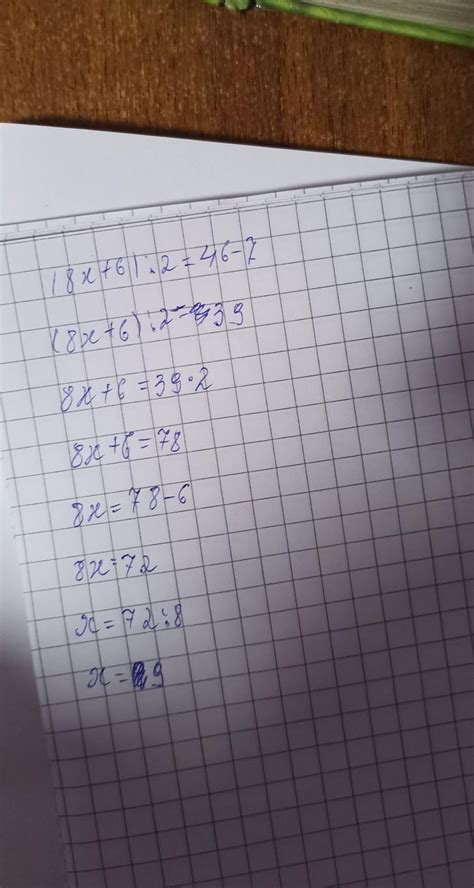 (8x+6):2=46-7
(8x+6):2=39
8x+6=39·2
8x+6=78
8x=78-6
8x=72
x=72:8
x=9